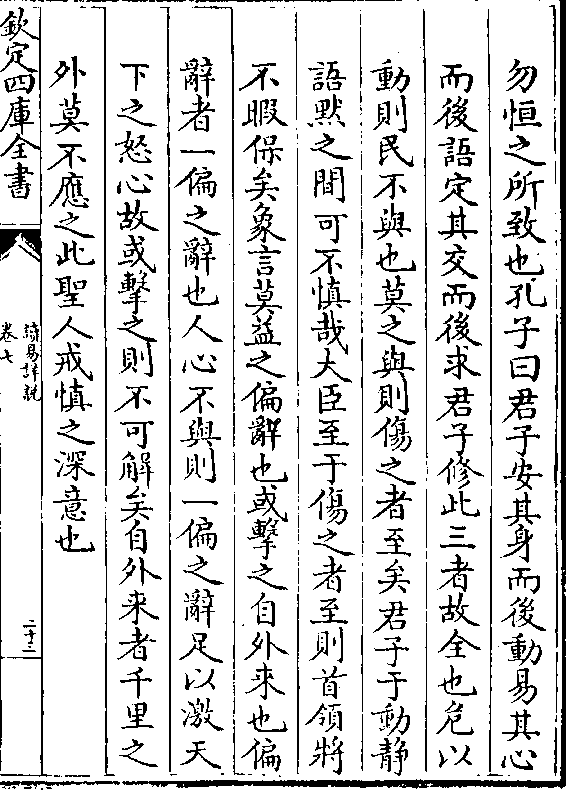 勿恒之所致也孔子曰君子安其身而後動易其心
而後語定其交而後求君子修此三者故全也危以
動則民不與也莫之與則傷之者至矣君子于動靜
語默之間可不慎哉大臣至于傷之者至則首領將
不暇保矣象言莫益之偏辭也或擊之自外来也偏
辭者一偏之辭也人心不與則一偏之辭足以激天
下之怒心故或擊之則不可解矣自外来者千里之
外莫不應之此聖人戒慎之深意也
欽定四庫全書
讀易詳說
卷七
二十三